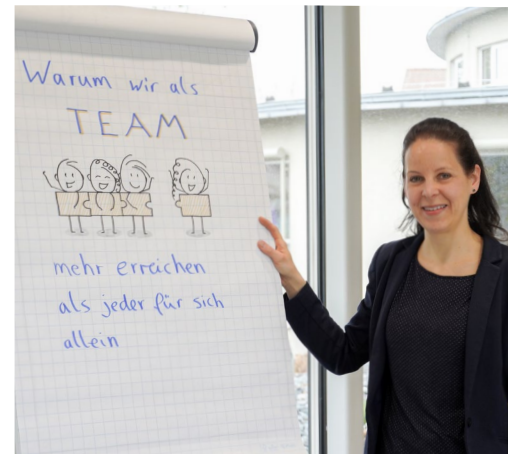 Warum wir als
TEAM
mehr erreichen
als jeder für sich
allein